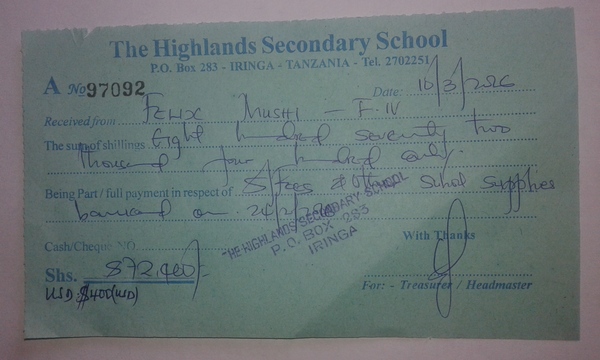 The Highlands Secondary School
P.O. Box 283 - IRINGA - TANZANIA - Tel. 2702251
A No 97092
Date: 10/3/2026
Received from FELIX MUSHI - F.IV
The sum of shillings Eight hundred seventy two
thousand four hundred only.
Being Part / full payment in respect of S/Fees & School Supplies
on 24/2/
THE HIGHLANDS SECONDARY SCHOOL
P.O. BOX 283
IRINGA
Cash/Cheque NO.
With Thanks
Shs. 872,400/-
USD: $400(USD)
For: - Treasurer / Headmaster